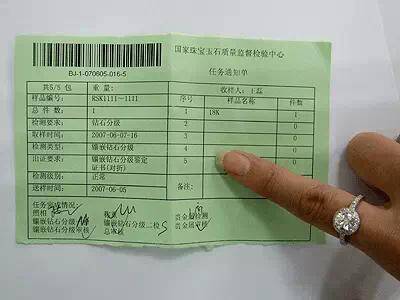 国家珠宝玉石质量监督检验中心
BJ-1-070605-016-5
任务通知单
共5/5 包 重量:
收样人: 王磊
样品编号: RSK1111-1111
序号 样品名称 件数
总件数: 1
1 18K 1
检测要求: 钻石分级
2 0
取样时间: 2007-06-07-16
3
检测类型: 镶嵌钻石分级
4
出证要求: 镶嵌钻石分级鉴定证书(对折)
5
检测级别: 正常
送样时间: 2007-06-05
备注:
任务完成情况
照相
贵金属检测
镶嵌钻石分级
镶嵌钻石分级二检
贵金属审核
镶嵌钻石分级审核
总审核